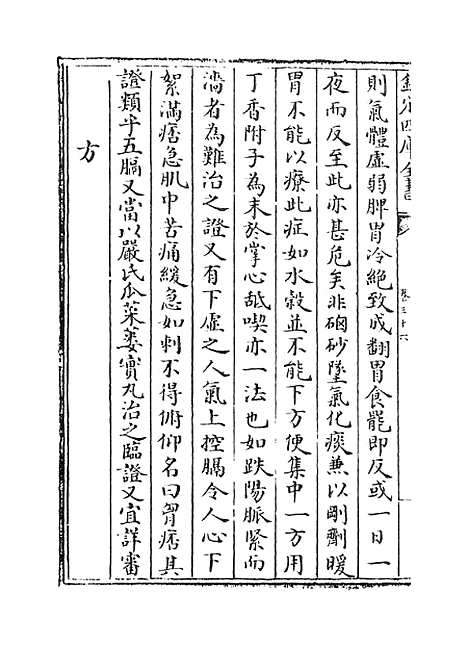 欽定四庫全書
卷三十六
則氣體虛弱脾胃冷絕致成翻胃食罷即反或一日一
夜而反至此亦甚危矣非硇砂墜氣化痰兼以剛劑暖
胃不能以療此症如水穀並不能下方便集中一方用
丁香附子為末於掌心舐喫亦一法也如趺陽脈緊而
濇者為難治之證又有下虛之人氣上控膈令人心下
絮滿痞急肌中苦痛緩急如刺不得俯仰名曰胷痞其
證類乎五膈又當以嚴氏瓜蔞實丸治之臨證又宜詳審
方